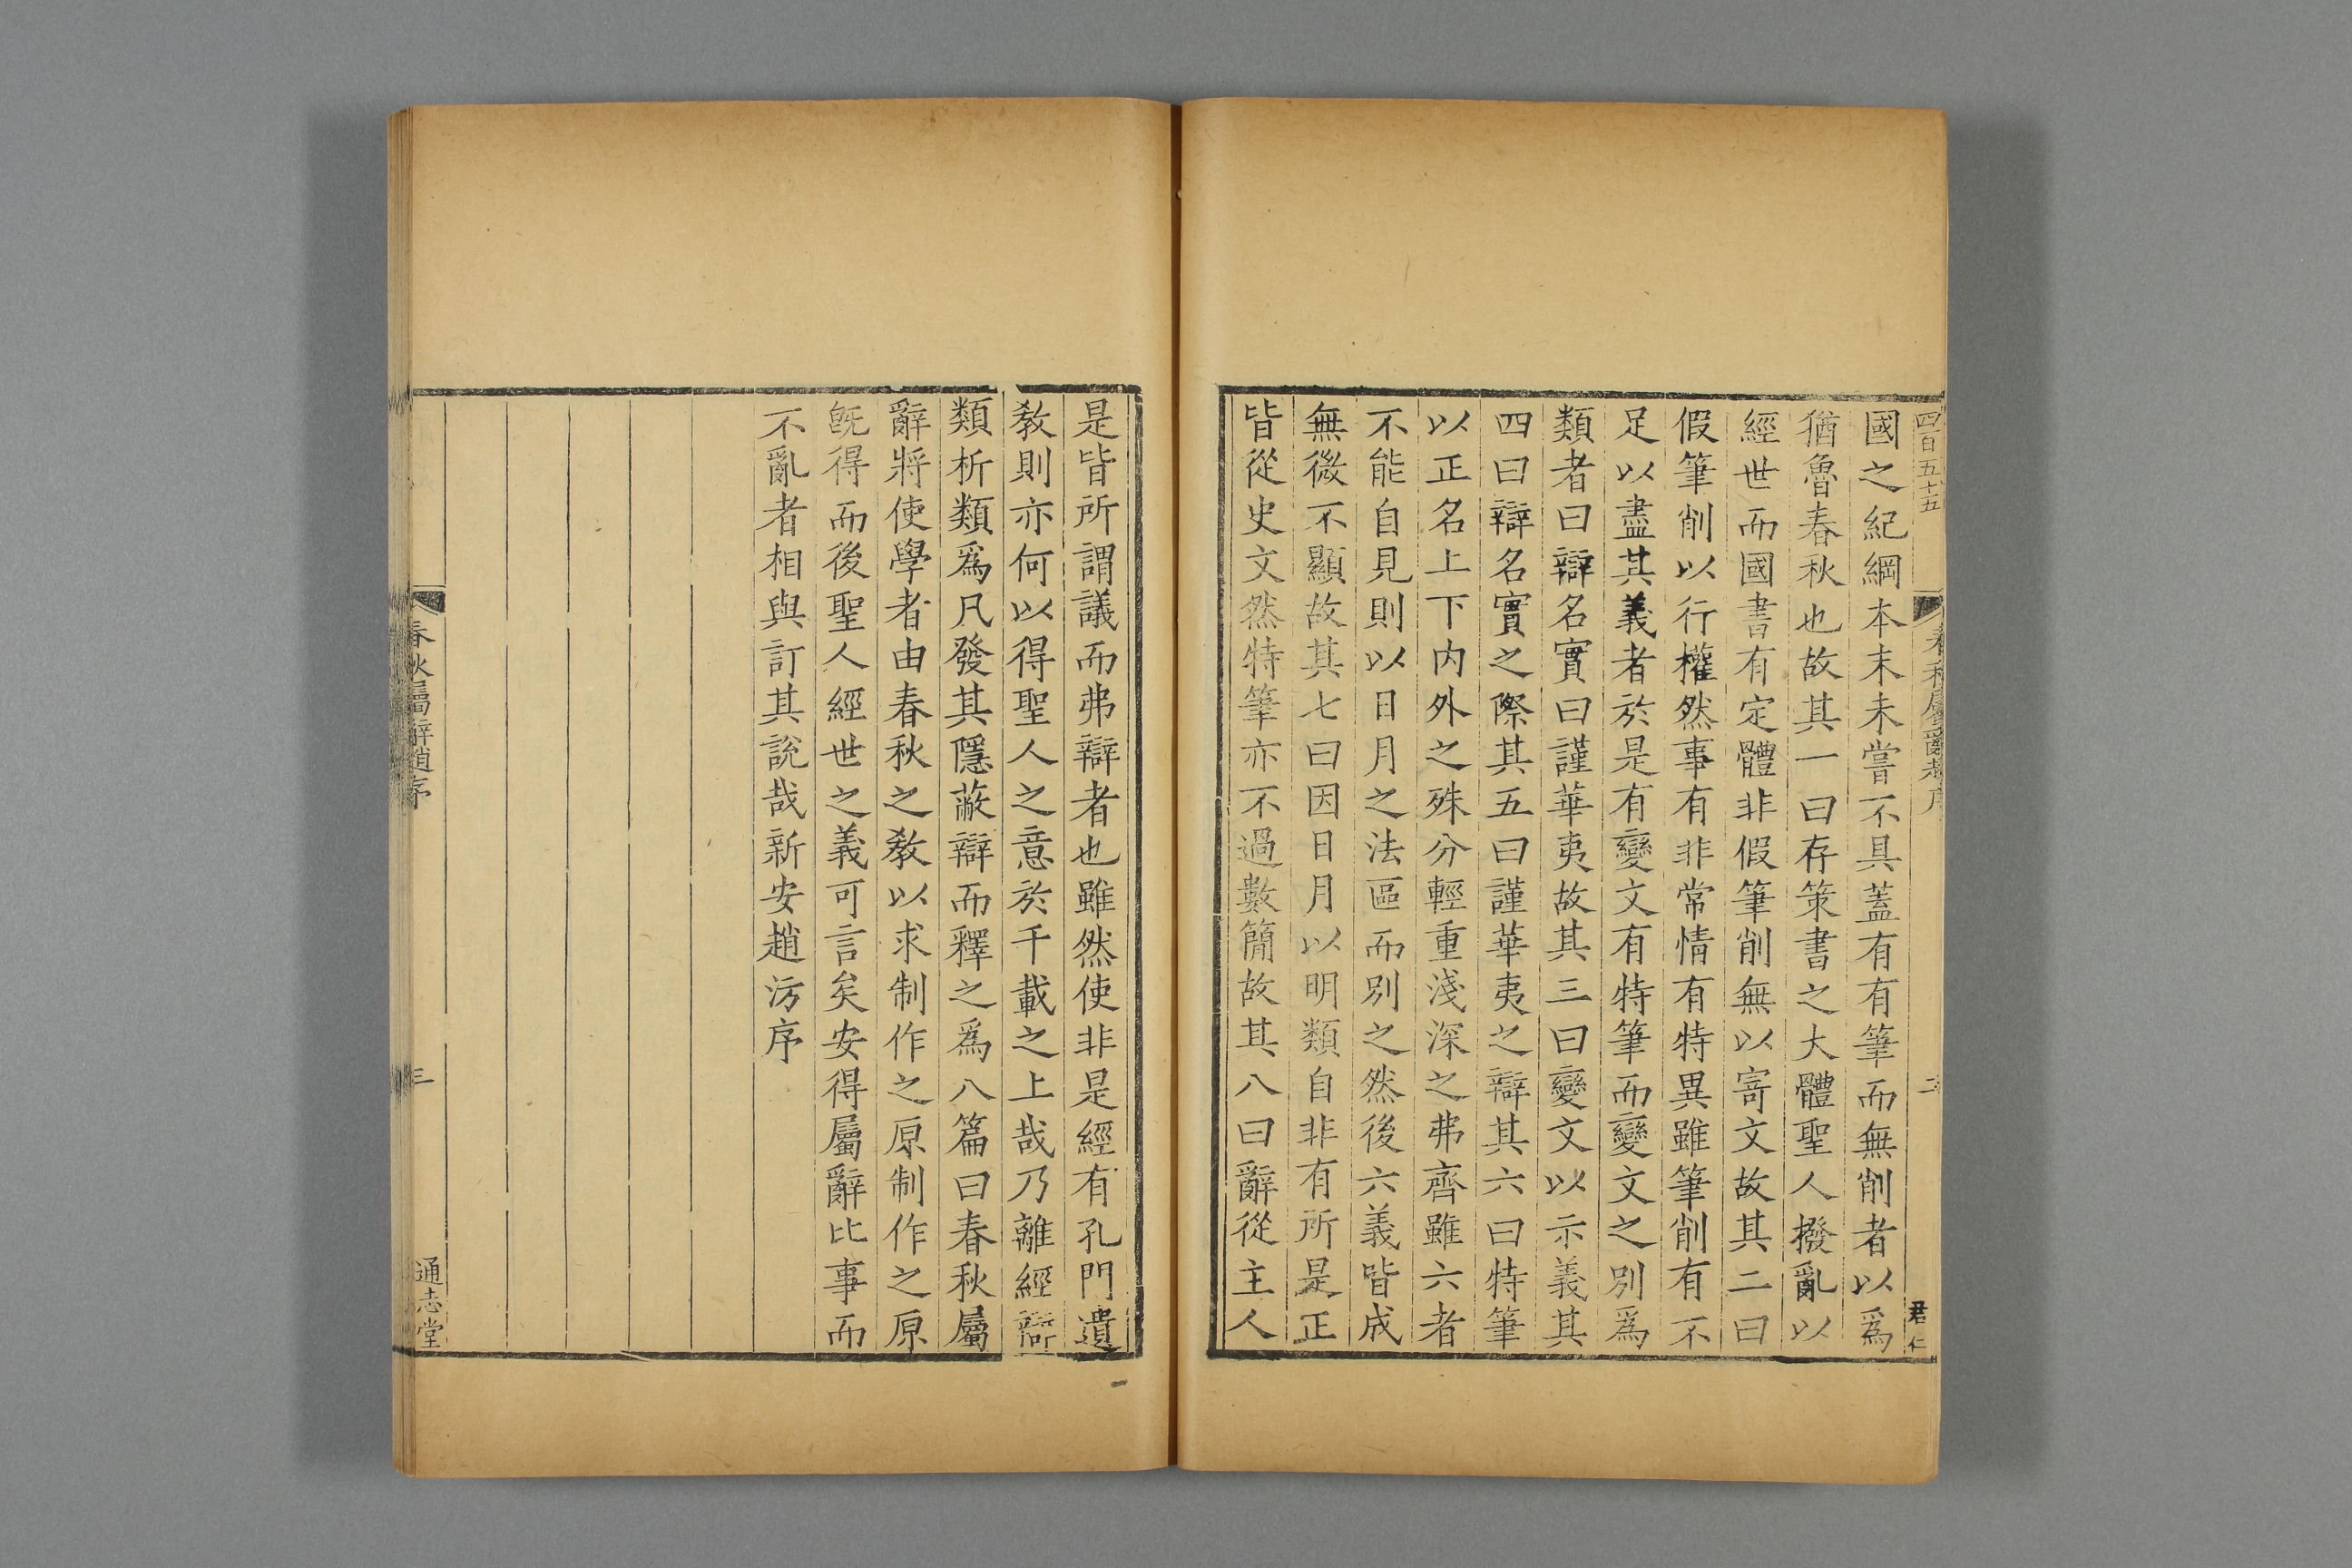 四百五十五
春秋屬辭趙序
二
君仁
國之紀綱本末未嘗不具蓋有有筆而無削者以爲
猶魯春秋也故其一曰存策書之大體聖人撥亂以
經世而國書有定體非假筆削無以寄文故其二曰
假筆削以行權然事有非常情有特異雖筆削有不
足以盡其義者於是有變文有特筆而變文之別爲
類者曰辯名實曰謹華夷故其三曰變文以示義其
四曰辯名實之際其五曰謹華夷之辯其六曰特筆
以正名上下内外之殊分輕重淺深之弗齊雖六者
不能自見則以日月之法區而別之然後六義皆成
無微不顯故其七曰因日月以明類自非有所是正
皆從史文然特筆亦不過數簡故其八曰辭從主人
是皆所謂議而弗辯者也雖然使非是經有孔門遺
教則亦何以得聖人之意於千載之上哉乃離經辯
類析類爲凡發其隱蔽辯而釋之爲八篇曰春秋屬
辭將使學者由春秋之教以求制作之原制作之原
旣得而後聖人經世之義可言矣安得屬辭比事而
不亂者相與訂其說哉新安趙汸序
春秋屬辭趙序
三
通志堂